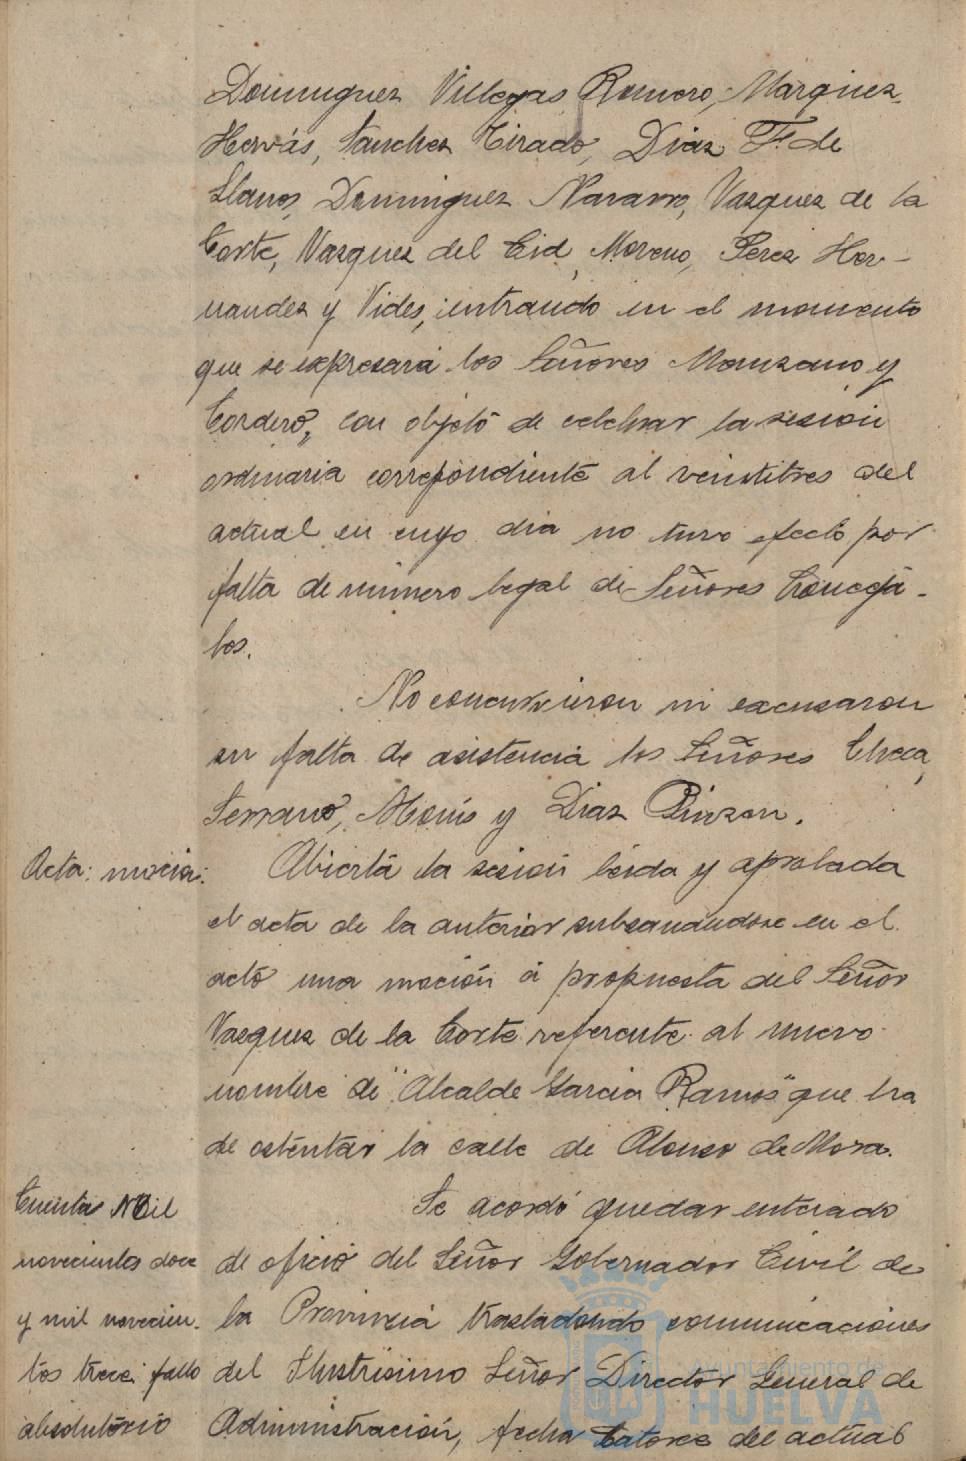 Dominguez Villegas Romero, Marquez
Hervás, Sanchez Tirado, Diaz F. de
Llanos, Dominguez Navarro, Vazquez de la
Corte, Vazquez del Cid, Moreno, Perez Her-
nandez y Vides, entrando en el momento
que se expresará los Señores Manzano y
Cordero, con objeto de celebrar la sesión
ordinaria correpondiente al veintitres del
actual en cuyo dia no tuvo efecto por
falta de número legal de Señores Conceja-
les.
No concurrieron ni excusaron
su falta de asistencia los Señores Checa,
Serrano, Monis y Diaz Pinzon.
Acta: moción:
Abierta la sesión leida y aprobada
el acta de la anterior subsanandose en el
acto una moción á propuesta del Señor
Vazquez de la Corte referente al nuevo
nombre de "Alcalde Garcia Ramos" que ha
de ostentar la calle de Alonso de Mora.
Cuentas Mil
novecientos doce
y mil novecien-
tos trece: fallo
absolutorio
Se acordó quedar enterado
de oficio del Señor Gobernador Civil de
la Provincia trasladando comunicaciones
del Ilustrísimo Señor Director General de
Administración, fecha catorce del actual
Ayuntamiento de
HUELVA